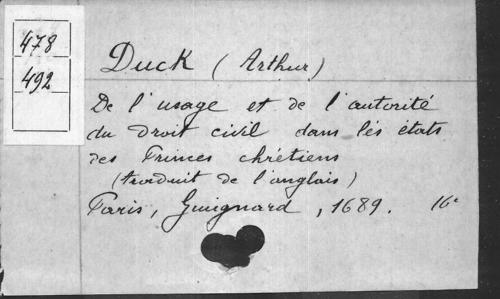 478
492
Duck (Arthur)
De l'usage et de l'autorité
du droit civil dans les états
des Princes chrétiens
(traduit de l'anglais)
Paris, Guignard, 1689. 16°